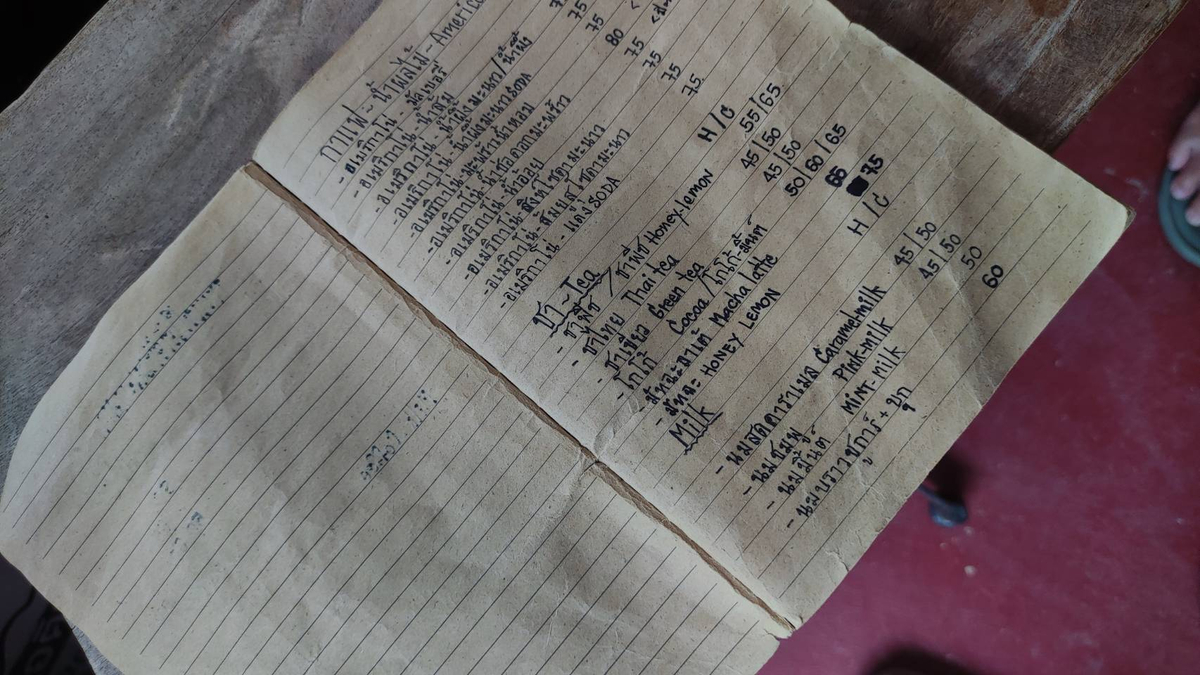 กาแฟ - น้ำผลไม้ - Americ
- อเมริกาโน่ - มัลเบอรี่ 75
- อเมริกาโน่ - น้ำส้ม 75
- อเมริกาโน่ - น้ำผึ้งมะนาว / น้ำผึ้ง 75
- อเมริกาโน่ - น้ำผึ้งมะนาวSODA 80
- อเมริกาโน่ - มะพร้าวน้ำหอม 75
- อเมริกาโน่ - น้ำช่อดอกมะพร้าว 75
- อเมริกาโน่ - น้ำอ้อย 75
- อเมริกาโน่ - มะนาว 75
- อเมริกาโน่ - มะนาว
- อเมริกาโน่ - SODA
ชา - Tea H / C
- ชามีช / ชาพีช Honey-LEMON 55/65
- ชาไทย Thai tea 45/50
- ชาเขียว Green tea 45/50
- โกโก้ Cocoa / โกโก้-มิ้นต์ 50/60/65
- มัทฉะลาเต้ Macha latte 65
- มัทฉะ HONEY LEMON 75
Milk H / C
- นมสดคาราเมล Caramelmilk 45/50
- นมชมพู Pink-milk 45/50
- นมมิ้นต์ MINT-milk 50
- นมบราวชูการ์ + บุก 60